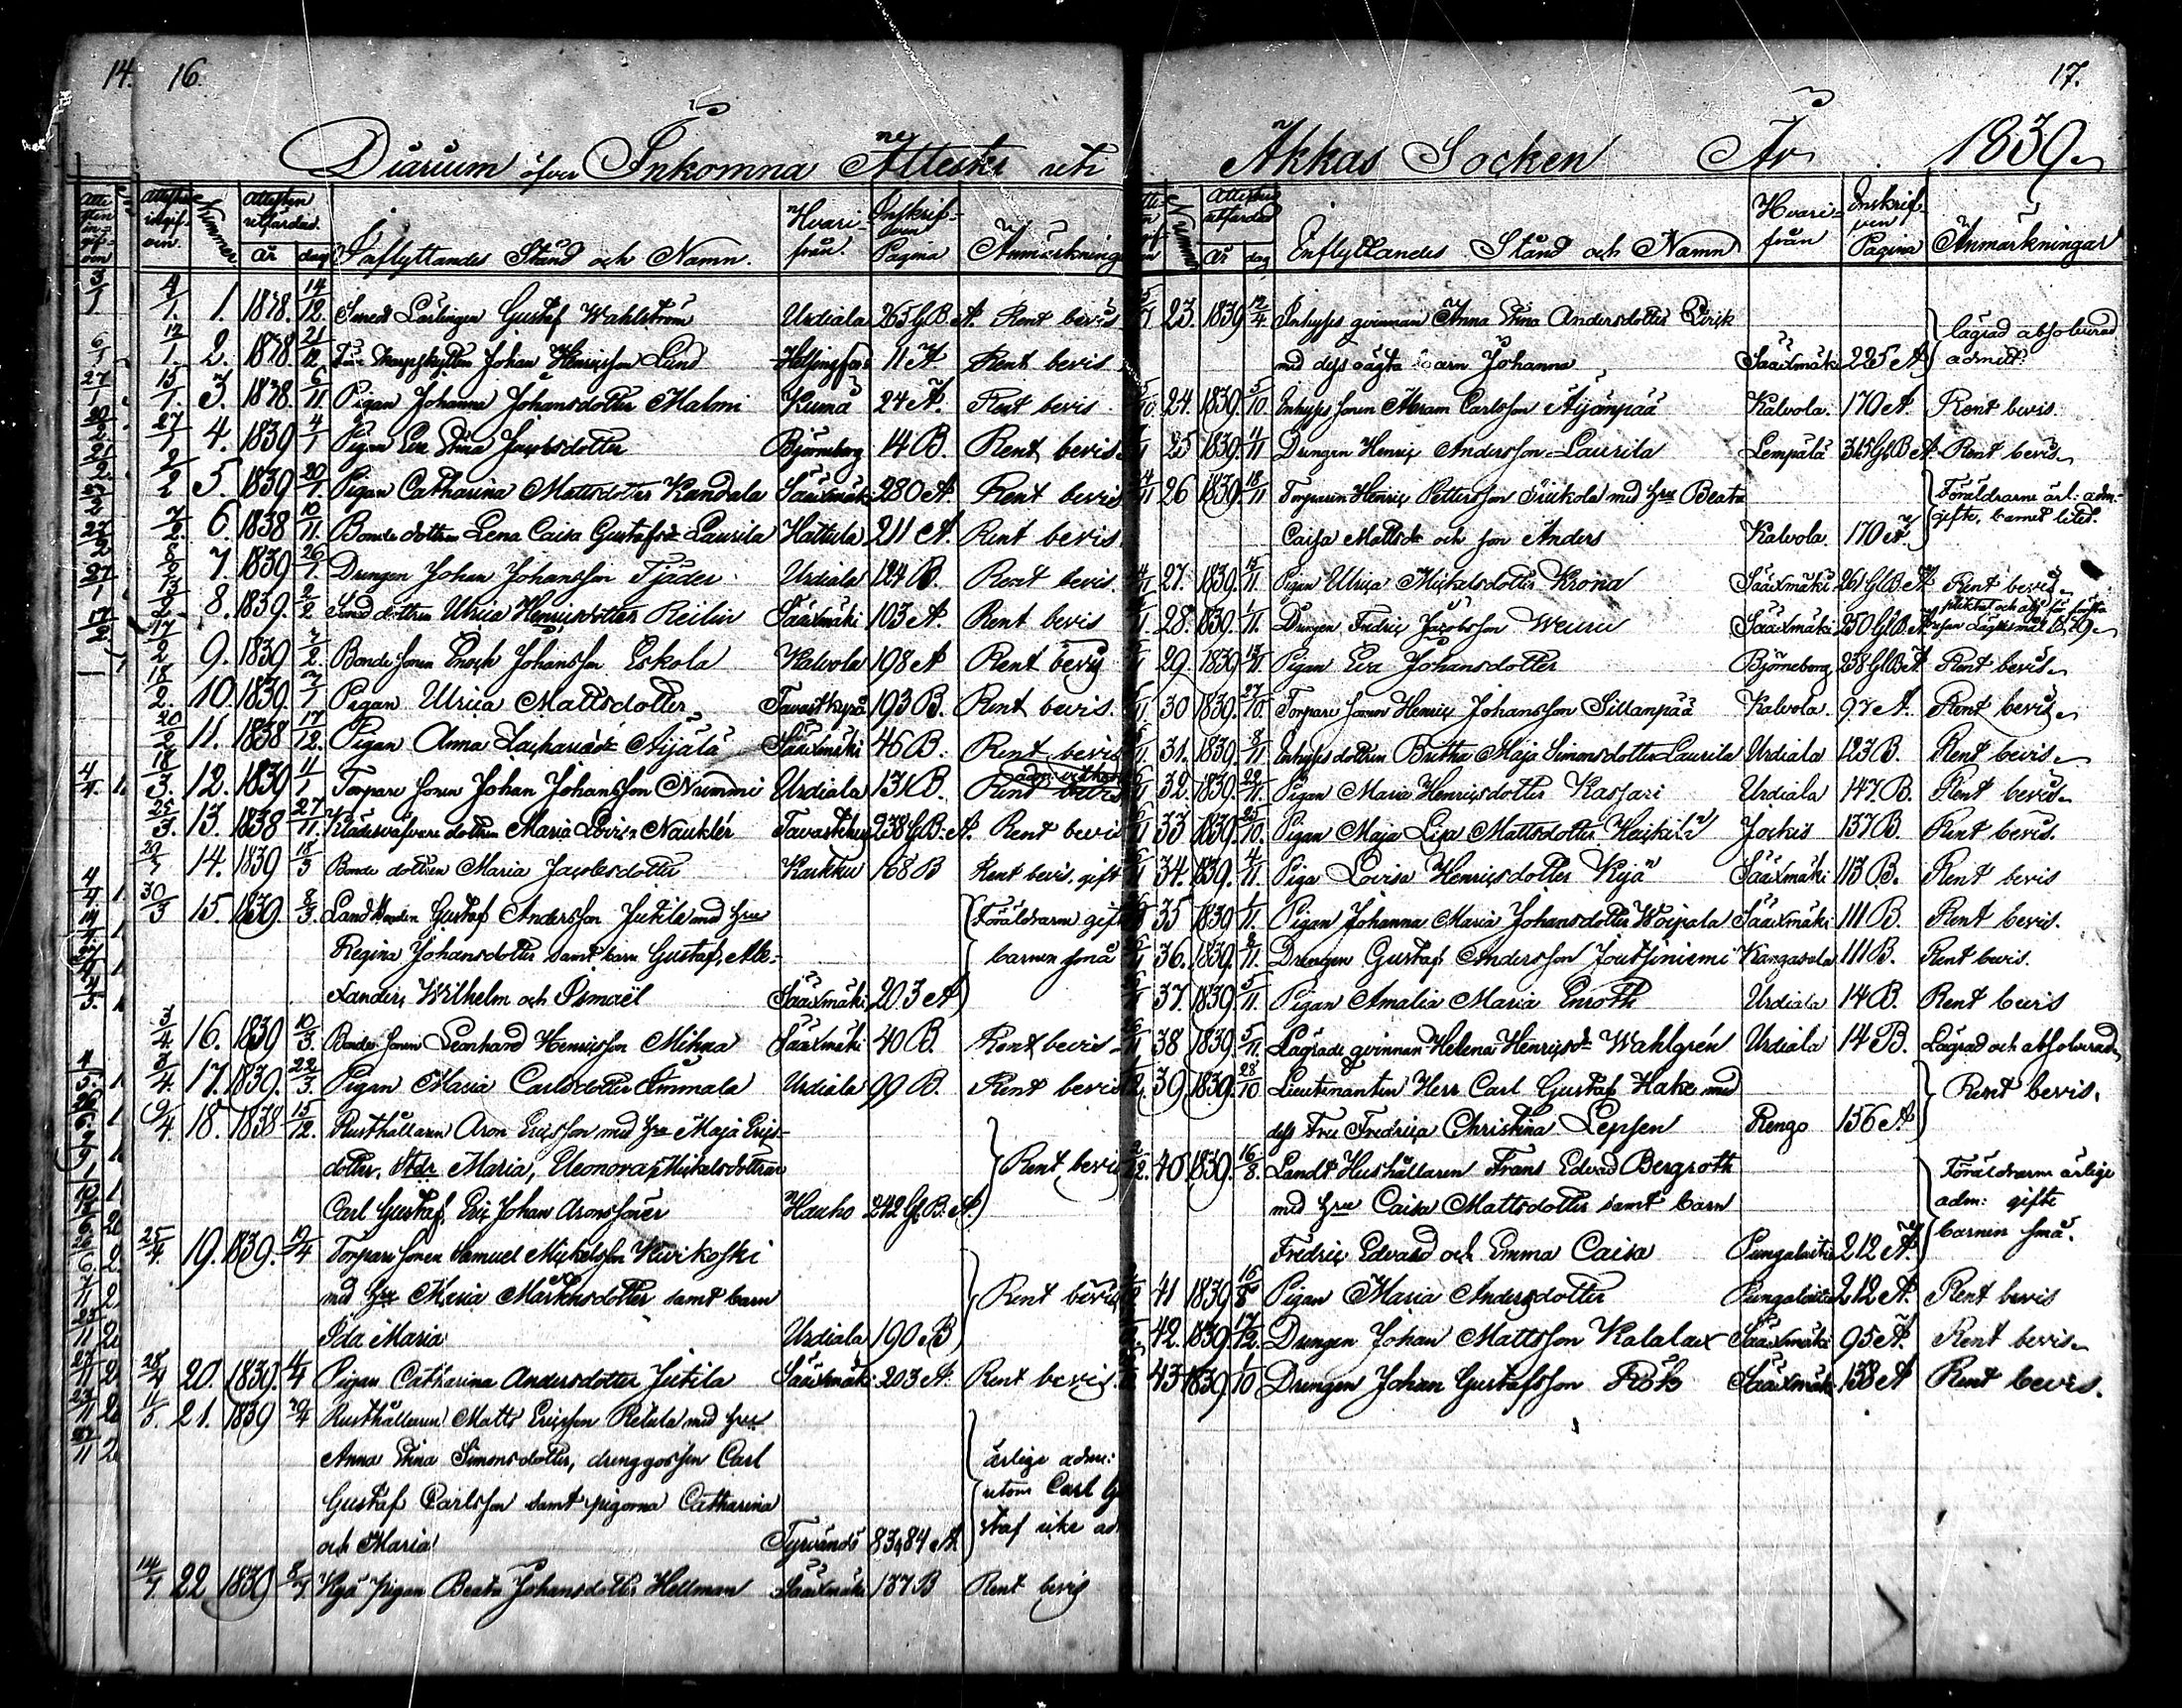 14. 16.
Diarium öfver Inkomna Attester uti
Attesten ingifven. Nummer Attesten utfärdad. år dag Inflyttandes Stånd och Namn. Hvarifrån. Inskrifven Pagina Anmärkning
4/1. 1. 1838. 14/12. Smeds Lärlingen Gustaf Wahlström Urdiala 265 Gl.B. A. Rent bevis
12/1. 2. 1838. 21/12. Johan Henricsson Lund Helsingfors 11 A Rent bevis
15/1. 3. 1838. 6/11 Pigan Johanna Johansdotter Malmi Kumå 24 A. Rent bevis
27/1. 4. 1839 4/1 Pigan Eva Stina Jacobsdotter Björneborg 14 B. Rent bevis
2/2 5. 1839 20/1. Pigan Catharina Mattsdotter Kandala Sääxmäki 280 A. Rent bevis
7/2. 6. 1838 10/11. Bondedottren Lena Caisa Gustafsdr Laurila Hattula 211 A. Rent bevis
8/2 7. 1839 26/1. Drengen Johan Johansson Tjäder Urdiala 124 B. Rent bevis
8. 1839. 2/2 dottren Ulrica Henricsdotter Reilin Sääxmäki 103 A. Rent bevis
17/2 9. 1839 7/2. Bonde sonen Enoch Johansson Eskola Kalvola 198 A Rent bevis
18/2. 10. 1839. 7/1 Pigan Ulrica Mattsdotter Tavastkyrö 193 B. Rent bevis.
20/2 11. 1838 17/12. Pigan Anna Zachariædr Äijälä Sääxmäki 46 B. Rent bevis
18/3. 12. 1839 11/1 Torpare sonen Johan Johansson Nummi Urdiala 131 B. Rent bevis
25/3. 13. 1838 27/11. Klädesväfvare dottren Maria Lovisa Nauklér Tavastehus 238 Gl.B. A. Rent bevis
14. 1839 18/3 Bonde dottren Maria Jacobsdotter Karkku 168 B Rent bevis, gift
30/3 15. 1839. 8/3. Landbonden Gustaf Andersson Jutila med hru Föräldrarne gift
Regina Johansdotter samt barn Gustaf, Ale- barnen små
xander, Wilhelm och Ismaël Sääxmäki 203 A
3/4. 16. 1839 10/3. Bonde sonen Leonhard Henricsson Mihna Sääxmäki 40 B. Rent bevis
3/4. 17. 1839. 22/3. Pigan Maria Carlsdotter Immala Urdiala 99 B. Rent bevis
9/4. 18. 1838 15/12. Rusthållaren Aron Ericsson med hru Maja Erics-
dotter, Maria, Eleonora Mickelsdöttrar Rent bevis
Carl Gustaf, Eric Johan Aronssöner Hauho 242 Gl.B. A.
25/4. 19. 1839. 19/4 Torpare sonen Samuel Mickelsson Kuvikoski
med hru Maria Mårtensdotter samt barn Rent bevis
Ida Maria Urdiala 190 B
28/4 20. 1839. 4/4 Pigan Catharina Andersdotter Jutila Sääxmäki 203 A. Rent bevis.
21. 1839 20/4 Rusthållaren Matts Ericsson Retula med hru
Anna Stina Simonsdotter, drenggossen Carl ärlige adm:
Gustaf Carlsson samt pigorna Catharina utom Carl Gu
och Maria Tyrvändö 83, 84 A staf icke ad
14/7. 22 1839 8/7 Pigan Beata Johansdotter Hellman Sääxmäki 137 B Rent bevis
17.
Akkas Socken År 1839
Nummer Attesten utfärdad år dag Inflyttandes Stånd och Namn Hvarifrån Inskrifven Pagina Anmärkningar
23. 1839 12/4 Inhyses qvinnan Anna Stina Andersdotter lägrad absolverad
med dess oägta barn Johanna Sääxmäki 225 A admitt:
24. 1839. 5/10 Inhyses sonen Abram Carlsson Äijänpää Kalvola. 170 A. Rent bevis.
25 1839. 4/11 Drengen Henric Andersson Laurila Lempälä 315 Gl.B A. Rent bevis
26 1839. 18/11 Torparen Henric Pettersson med hru Beata Föräldrarne ärl: adm-
Caisa Mattsdr och son Anders Kalvola. 170 A. gifte, barnet litet.
27. 1839. 15/11. Pigan Ulrica Mickelsdotter Krona Sääxmäki 261 Gl.B. A. Rent bevis
28. 1839. 1/11. Drengen Fredric Jacobsson Weuru Sääxmäki 250 Gl.B. A.
29 1839 Pigan Eva Johansdotter Björneborg 238 Gl.B A Rent bevis
30 1839. 27/10. Torpare sonen Henric Johansson Sillanpää Kalvola. 97 A. Rent bevis
31. 1839. 8/11 Inhyses dottren Britha Maja Simonsdotter Laurila Urdiala 123 B. Rent bevis
32. 1839. 22/11. Pigan Maria Henricsdotter Kassari Urdiala 147 B. Rent bevis
33 1839. 25/10. Pigan Maja Lisa Mattsdotter Heickilä Jockis 137 B. Rent bevis.
34. 1839. 4/11. Piga Lovisa Henricsdotter Kyjä Sääxmäki 113 B. Rent bevis
35 1839 1/11. Pigan Johanna Maria Johansdotter Woipala Sääxmäki 111 B. Rent bevis.
36. 1839. 8/11. Drengen Gustaf Andersson Joutsiniemi Kangasala 111 B. Rent bevis.
37. 1839 5/11. Pigan Amalia Maria Enroth Urdiala 14 B. Rent bevis
38 1839. 5/11. Lägrade qvinnan Helena Henricsdr Wahlgrén Urdiala 14 B. Lägrad och absolverad
39 1839. 28/10 Lieutenanten Herr Carl Gustaf Hake med Rent bevis.
dess Fru Fredrica Christina Lepsen Rengo 156 A
40. 1839. 16/8. Landt Hushållaren Frans Edvard Bergroth Föräldrarne ärlige
med hru Caisa Mattsdotter samt barn adm: gifte
Fredric Edvard och Emma Caisa Pungalaitio 212 A. barnen små.
41 1839 16/8 Pigan Maria Andersdotter Pungalaitio 212 A. Rent bevis
42. 1839. 17/12. Drengen Johan Mattsson Kalalax Sääxmäki 95 A. Rent bevis
43 1839 1/10 Drengen Johan Gustafsson Röh Sääxmäki 138 A Rent bevis.